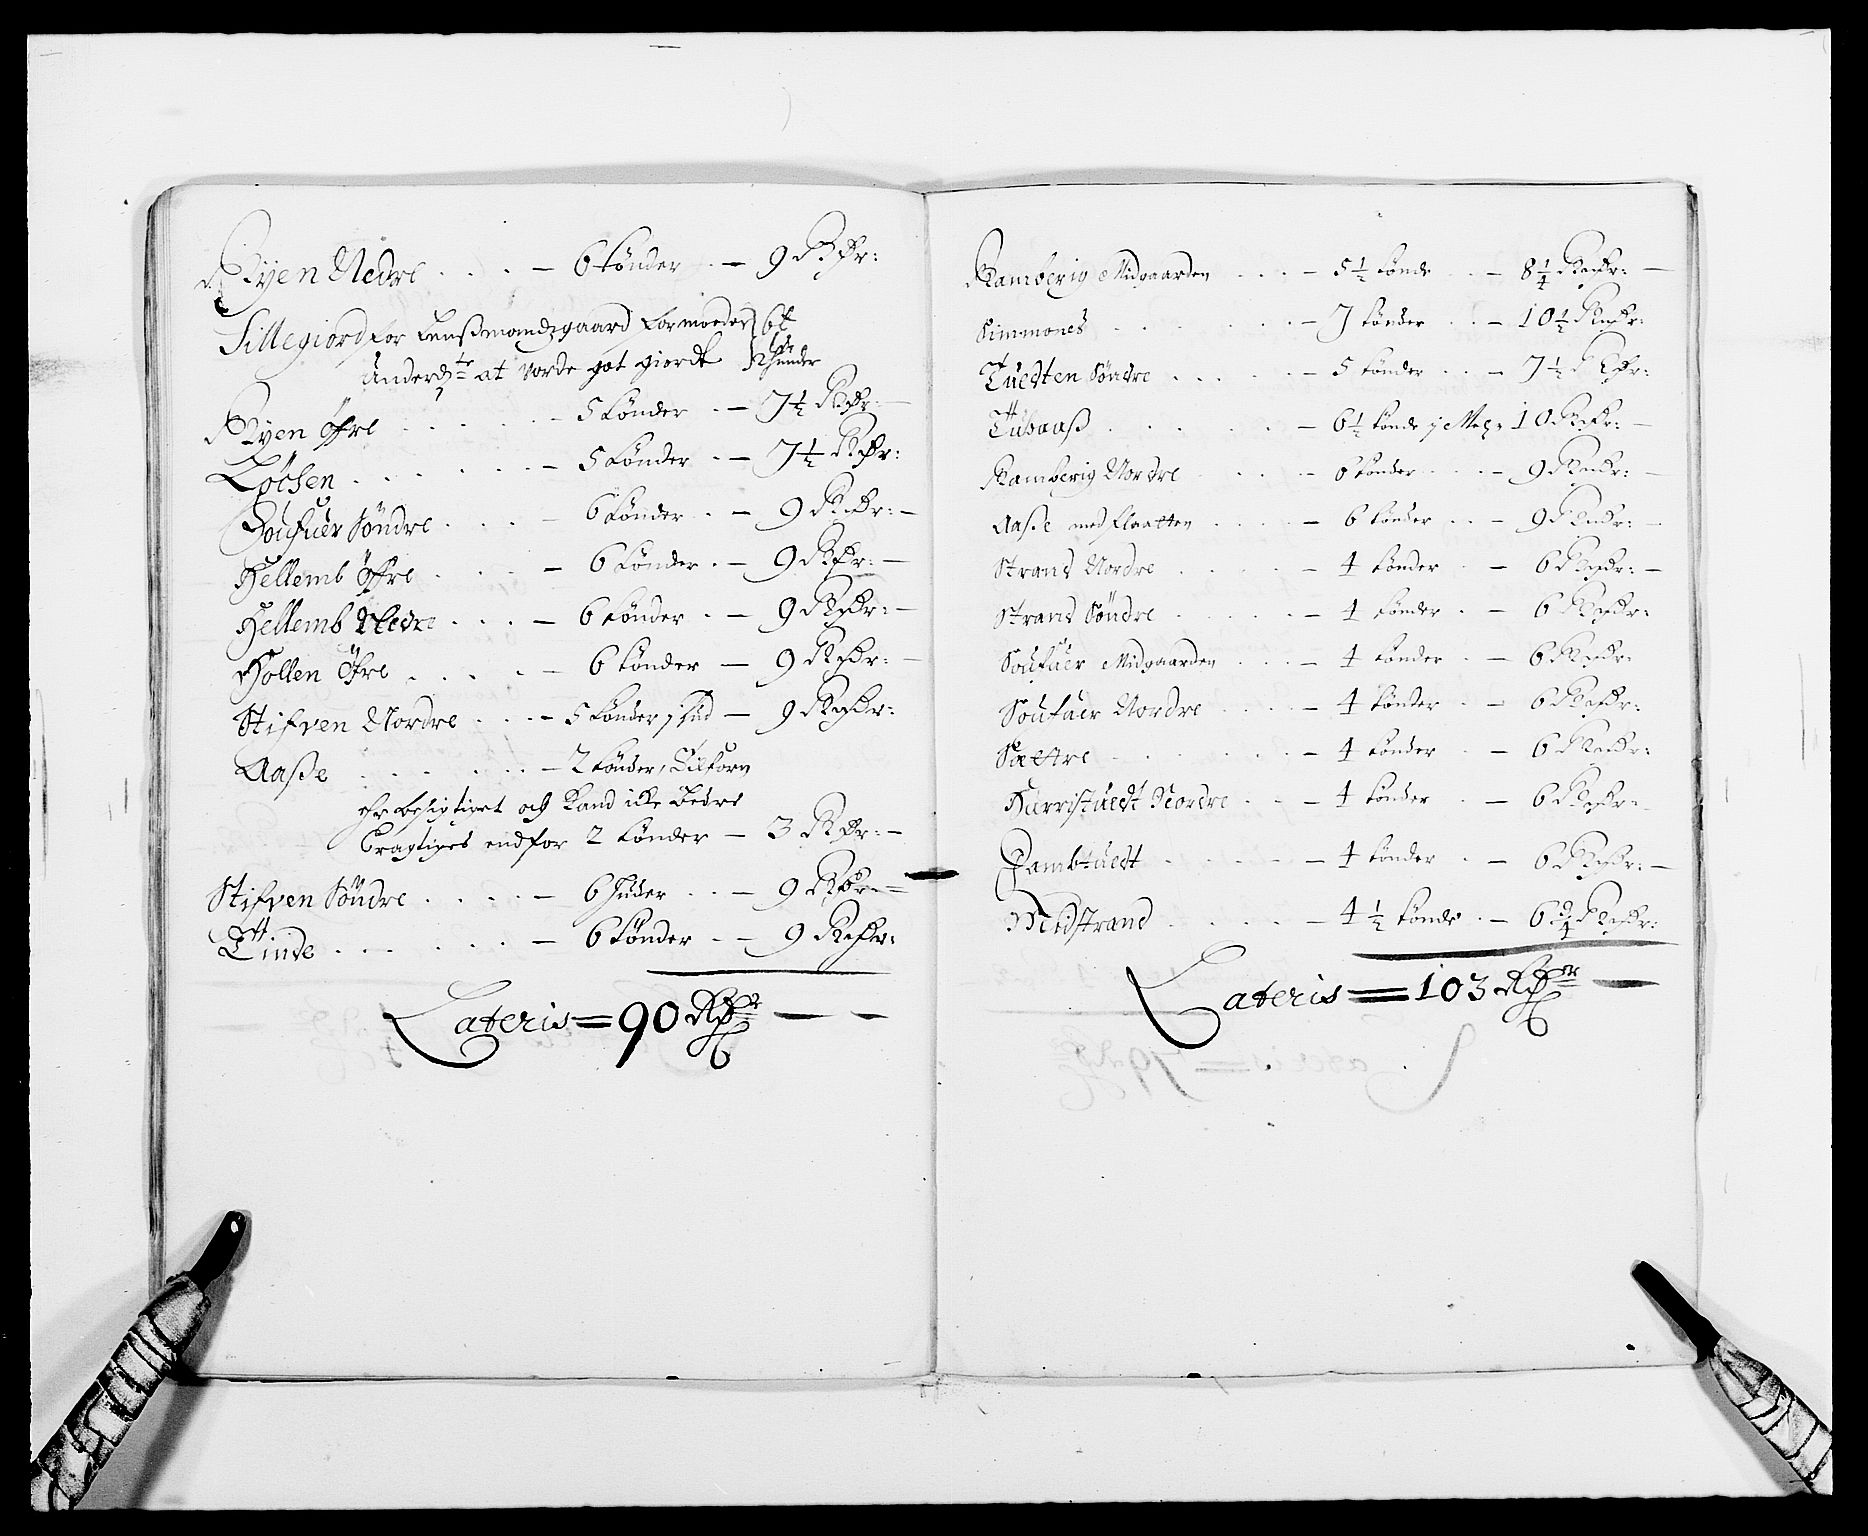 Ryen Nedre . . . . — 6 tønder . — 9 Rdr:
Sillegiord for Lensßmandsgaard formoeder 6 t
Underd: at vorde got giordt 2 hunder
Ryen Öfre . . . . . — 5 tønder . — 7½ Rdr: —
Løcsen . . . . . . — 5 tønder . — 7½ Rdr:
Soufuer Söndre . . . . — 6 tønder . — 9 Rdr: —
Hellemb Öffre . . . . — 6 tønder . — 9 Rdr: —
Hellemb Nedre . . . . — 6 tønder . — 9 Rdr: —
Hollen Öfre . . . . . — 6 tønder — 9 Rdr: —
Stifven Nordre . . . . — 5 tønder j hud — 9 Rdr:
Aaße . . . . . . — 2 tønder, Tilforn
er besigtiget och kand icke bedre
bragtiges end for 2 tønder — 3 Rdr: —
Stifven Söndre . . . . — 6 huder . . — 9 Rdr: —
Tinde . . . . . . — 6 tønder . — 9 Rdr:
Lateris = 90 Rdr — —
Ramberig Midgaarden . . . — 5½ tønde . . — 8¼ Rdr: —
Simmones . . . . . . — 7 tønder . . — 10½ Rdr:
Tuedten Söndre . . . . . — 5 tønder . . — 7½ Rdr:
Tubaaß . . . . . . — 6½ tønde j Mel: 10 Rdr: —
Ramberig Nordre . . . . — 6 tønder . . — 9 Rdr: —
Aaße med flaatten . . . . — 6 tønder . . — 9 Rdr: —
Strand Nordre . . . . . — 4 tønder . — 6 Rdr: —
Strand Söndre . . . . . — 4 tønder . — 6 Rdr:
Soufuer Midgaarden . . . — 4 tønder . — 6 Rdr:
Soufuer Nordre . . . . — 4 tønder . — 6 Rdr:
Sættre . . . . . . — 4 tønder . — 6 Rdr:
Hurristuedt Nordre . . — 4 tønder . — 6 Rdr: —
Jambtuedt . . . . . — 4 tønder . — 6 Rdr: —
Midstrand . . . . . — 4½ tønde . — 6¾ Rdr:
Lateris = 103 Rdr —